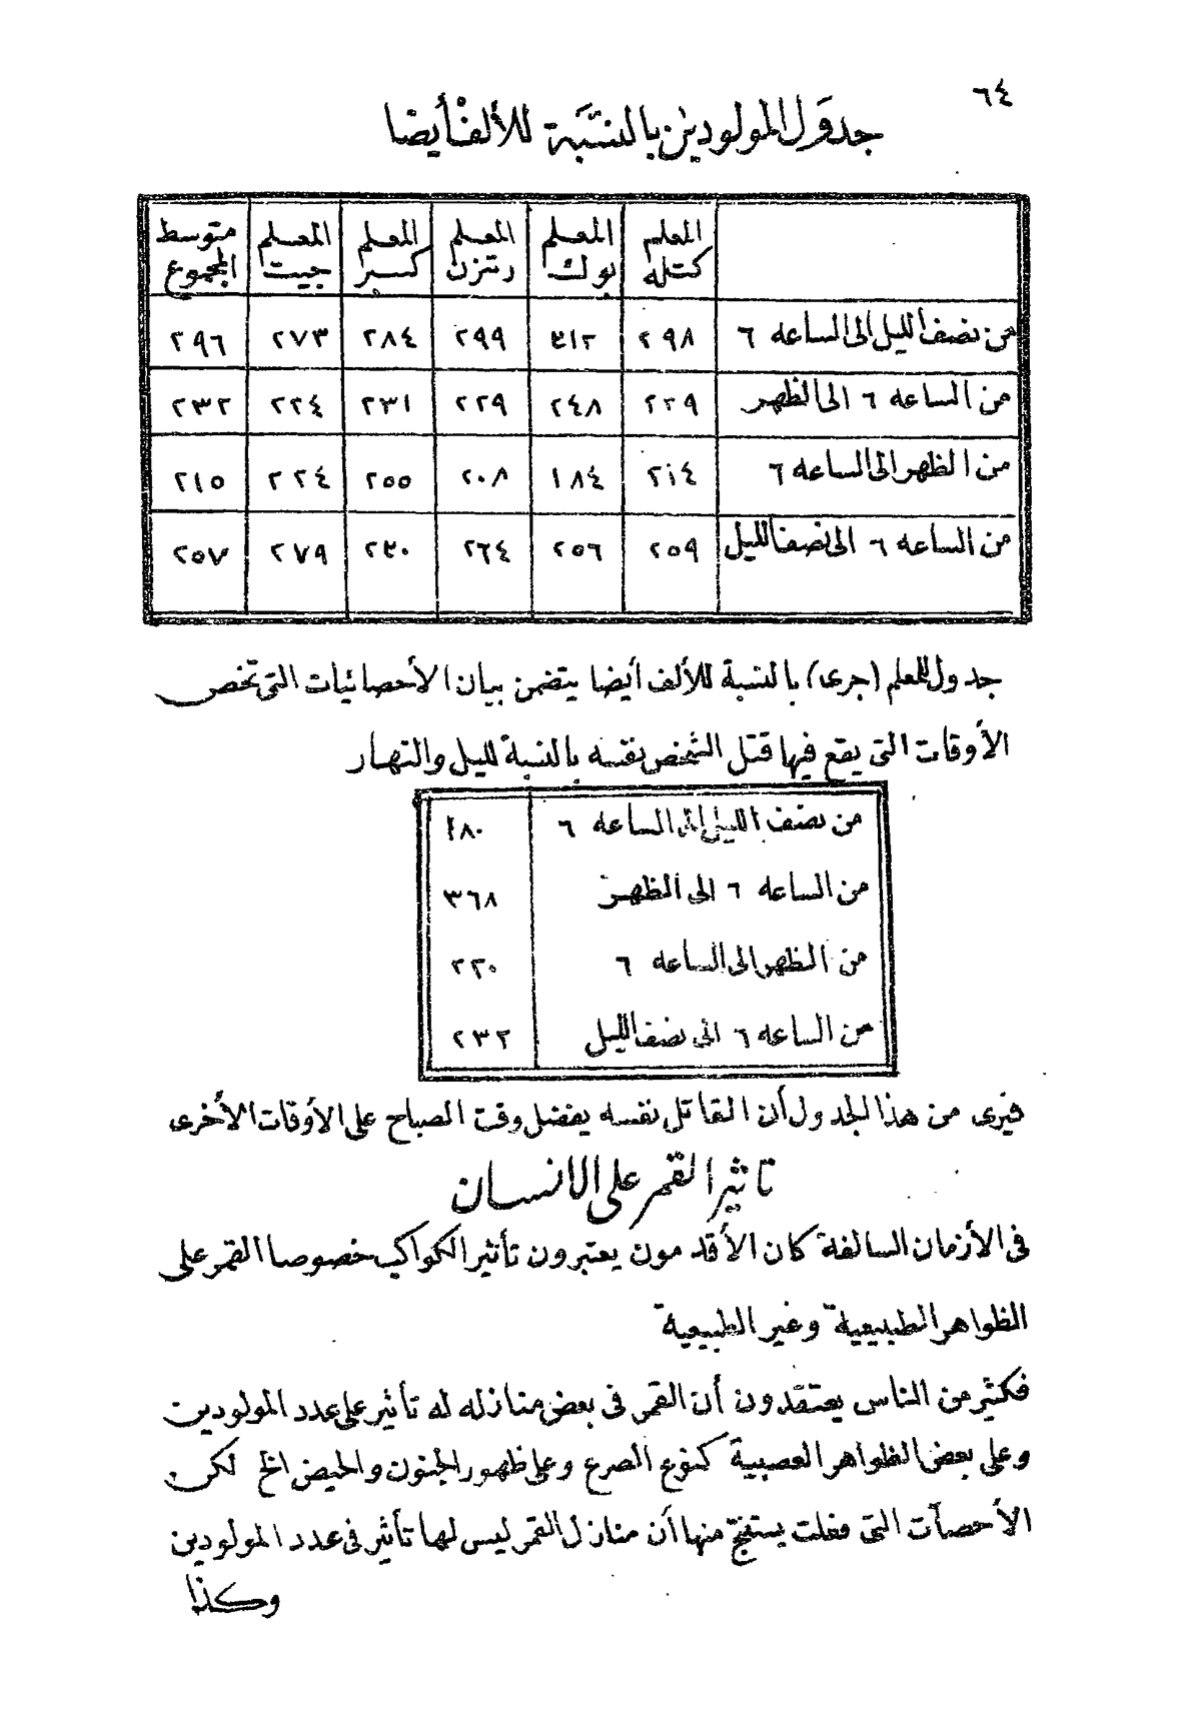 ٦٤
جدول المولودين بالنسبة للألف أيضا
المعلم كتله | المعلم بوك | المعلم رنتزن | المعلم كسبر | المعلم جيت | متوسط المجموع
من نصف الليل الى الساعه ٦ | ٢٩٨ | ٣١٢ | ٢٩٩ | ٢٨٤ | ٢٧٣ | ٢٩٦
من الساعه ٦ الى الظهر | ٢٢٩ | ٢٤٨ | ٢٢٩ | ٢٣١ | ٢٢٤ | ٢٣٢
من الظهر الى الساعه ٦ | ٢١٤ | ١٨٤ | ٢٠٨ | ٢٥٥ | ٢٢٤ | ٢١٥
من الساعه ٦ الى نصف الليل | ٢٥٩ | ٢٥٦ | ٢٦٤ | ٢٣٠ | ٢٧٩ | ٢٥٧
جدول للمعلم (جرى) بالنسبة للألف أيضا يتضمن بيان الأحصائيات التى تخص
الأوقات التى يقع فيها قتل الشخص نفسه بالنسبة لليل والنهار
من نصف الليل الى الساعه ٦ | ١٨٠
من الساعه ٦ الى الظهر | ٣٦٨
من الظهر الى الساعه ٦ | ٢٢٠
من الساعه ٦ الى نصف الليل | ٢٣٢
فنرى من هذا الجدول أن القاتل نفسه يفضل وقت الصباح على الأوقات الأخرى
تاثير القمر على الانسان
فى الأزمان السالفة كان الأقدمون يعتبرون تأثير الكواكب خصوصا القمر على
الظواهر الطبيعية وغير الطبيعية
فكثير من الناس يعتقدون أن القمر فى بعض منازله له تأثير على عدد المولودين
وعلى بعض الظواهر العصبية كنوع الصرع وعلى ظهور الجنون والحيض الخ لكن
الأحصآت التى فعلت يستنتج منها أن منازل القمر ليس لها تأثير فى عدد المولودين
وكذا